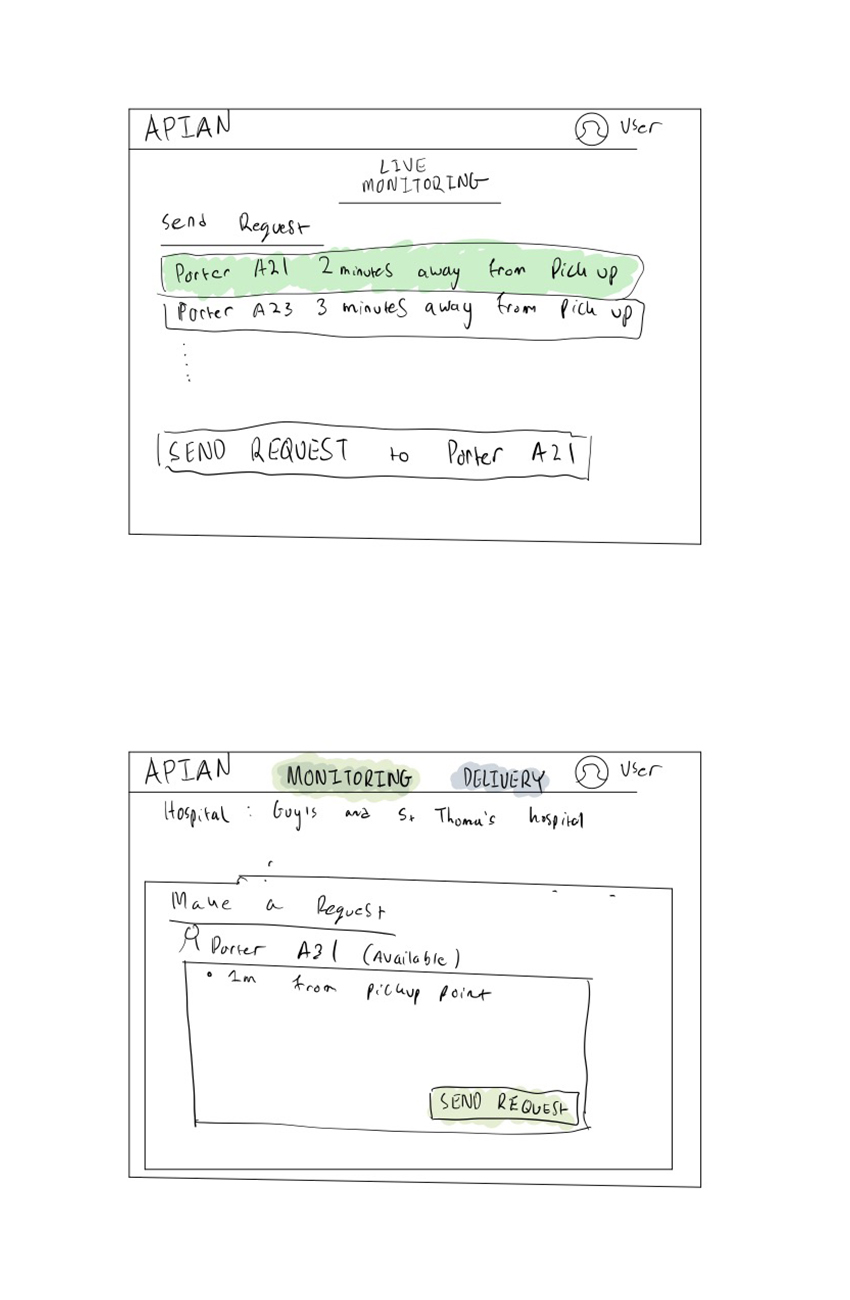 APIAN
User
LIVE
MONITORING
Send Request
Porter A21 2 minutes away from Pick up
Porter A23 3 minutes away from Pick up
SEND REQUEST to Porter A21
APIAN MONITORING DELIVERY User
Hospital : Guy's and St Thoma's hospital
Make a Request
Porter A31 (Available)
• 1m from pickup point
SEND REQUEST